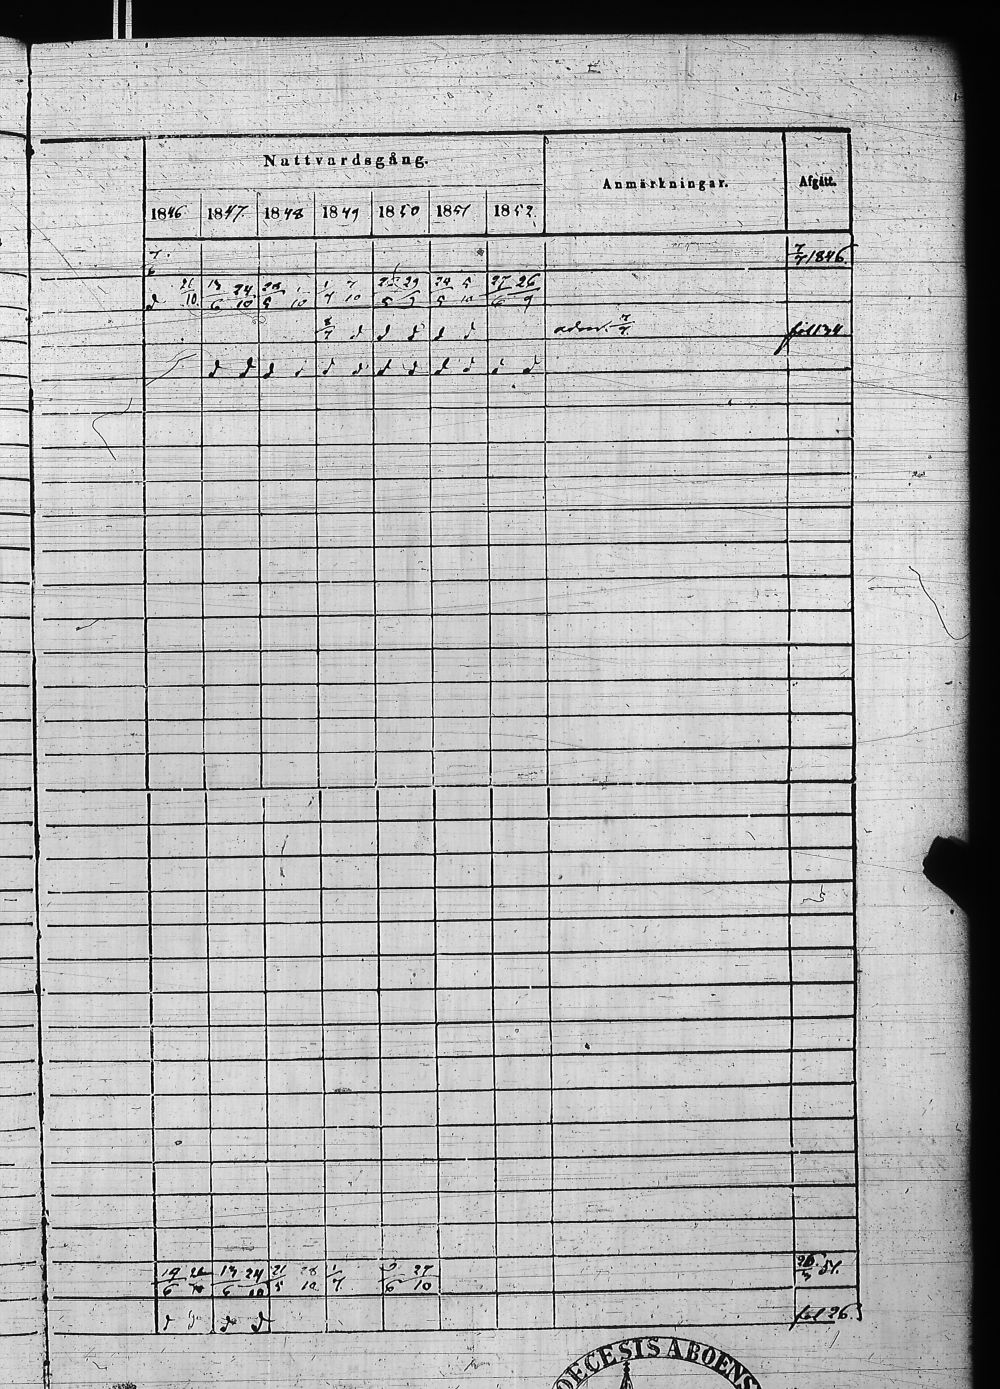 Nattvardsgång.
Anmärkningar.
Afgått.
1846 1847. 1848 1849 1850 1851 1852.
7. 6 7/7 1846
d 26/10 13/6 24/10 28/5 1/10 1/7 7/10 29/5 24/5 5/10 27/6 26/9
8/7 d d d d d adm. 7/7. fol 134
d d d d d d d d d d d d
19/6 26/10 13/6 24/10 21/5 28/10 1/7 27/10 26/3 51.
d d d d fol 26
DECESIS ABOENS